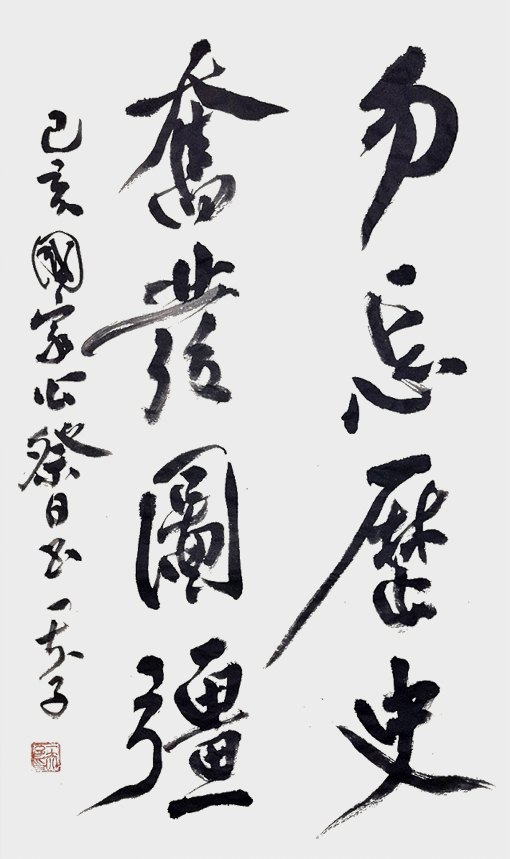 勿忘歷史
奮發圖彊
己亥國家公祭日書一衣子